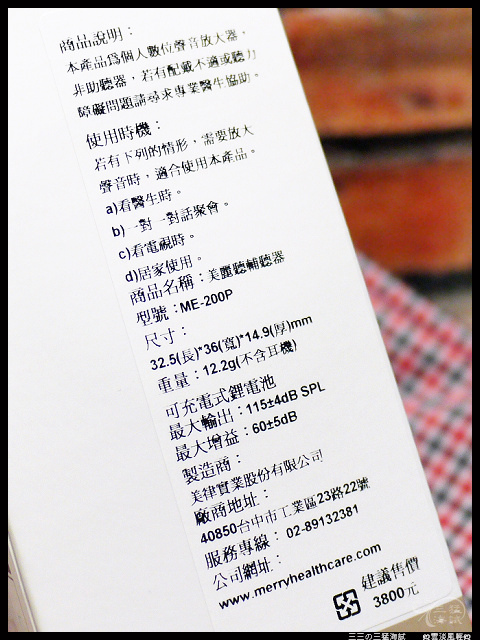 商品說明：
本產品為個人數位聲音放大器，
非助聽器，若有配戴不適或聽力
障礙問題請尋求專業醫生協助。
使用時機：
若有下列的情形，需要放大
聲音時，適合使用本產品。
a)看醫生時。
b)一對一對話聚會。
c)看電視時。
d)居家使用。
商品名稱：美麗聽輔聽器
型號：ME-200P
尺寸：
32.5(長)*36(寬)*14.9(厚)mm
重量：12.2g(不含耳機)
可充電式鋰電池
最大輸出：115±4dB SPL
最大增益：60±5dB
製造商：
美律實業股份有限公司
廠商地址：
40850台中市工業區23路22號
服務專線： 02-89132381
公司網址：
www.merryhealthcare.com
建議售價
3800元
三三の三猛海賊
雲淡風輕